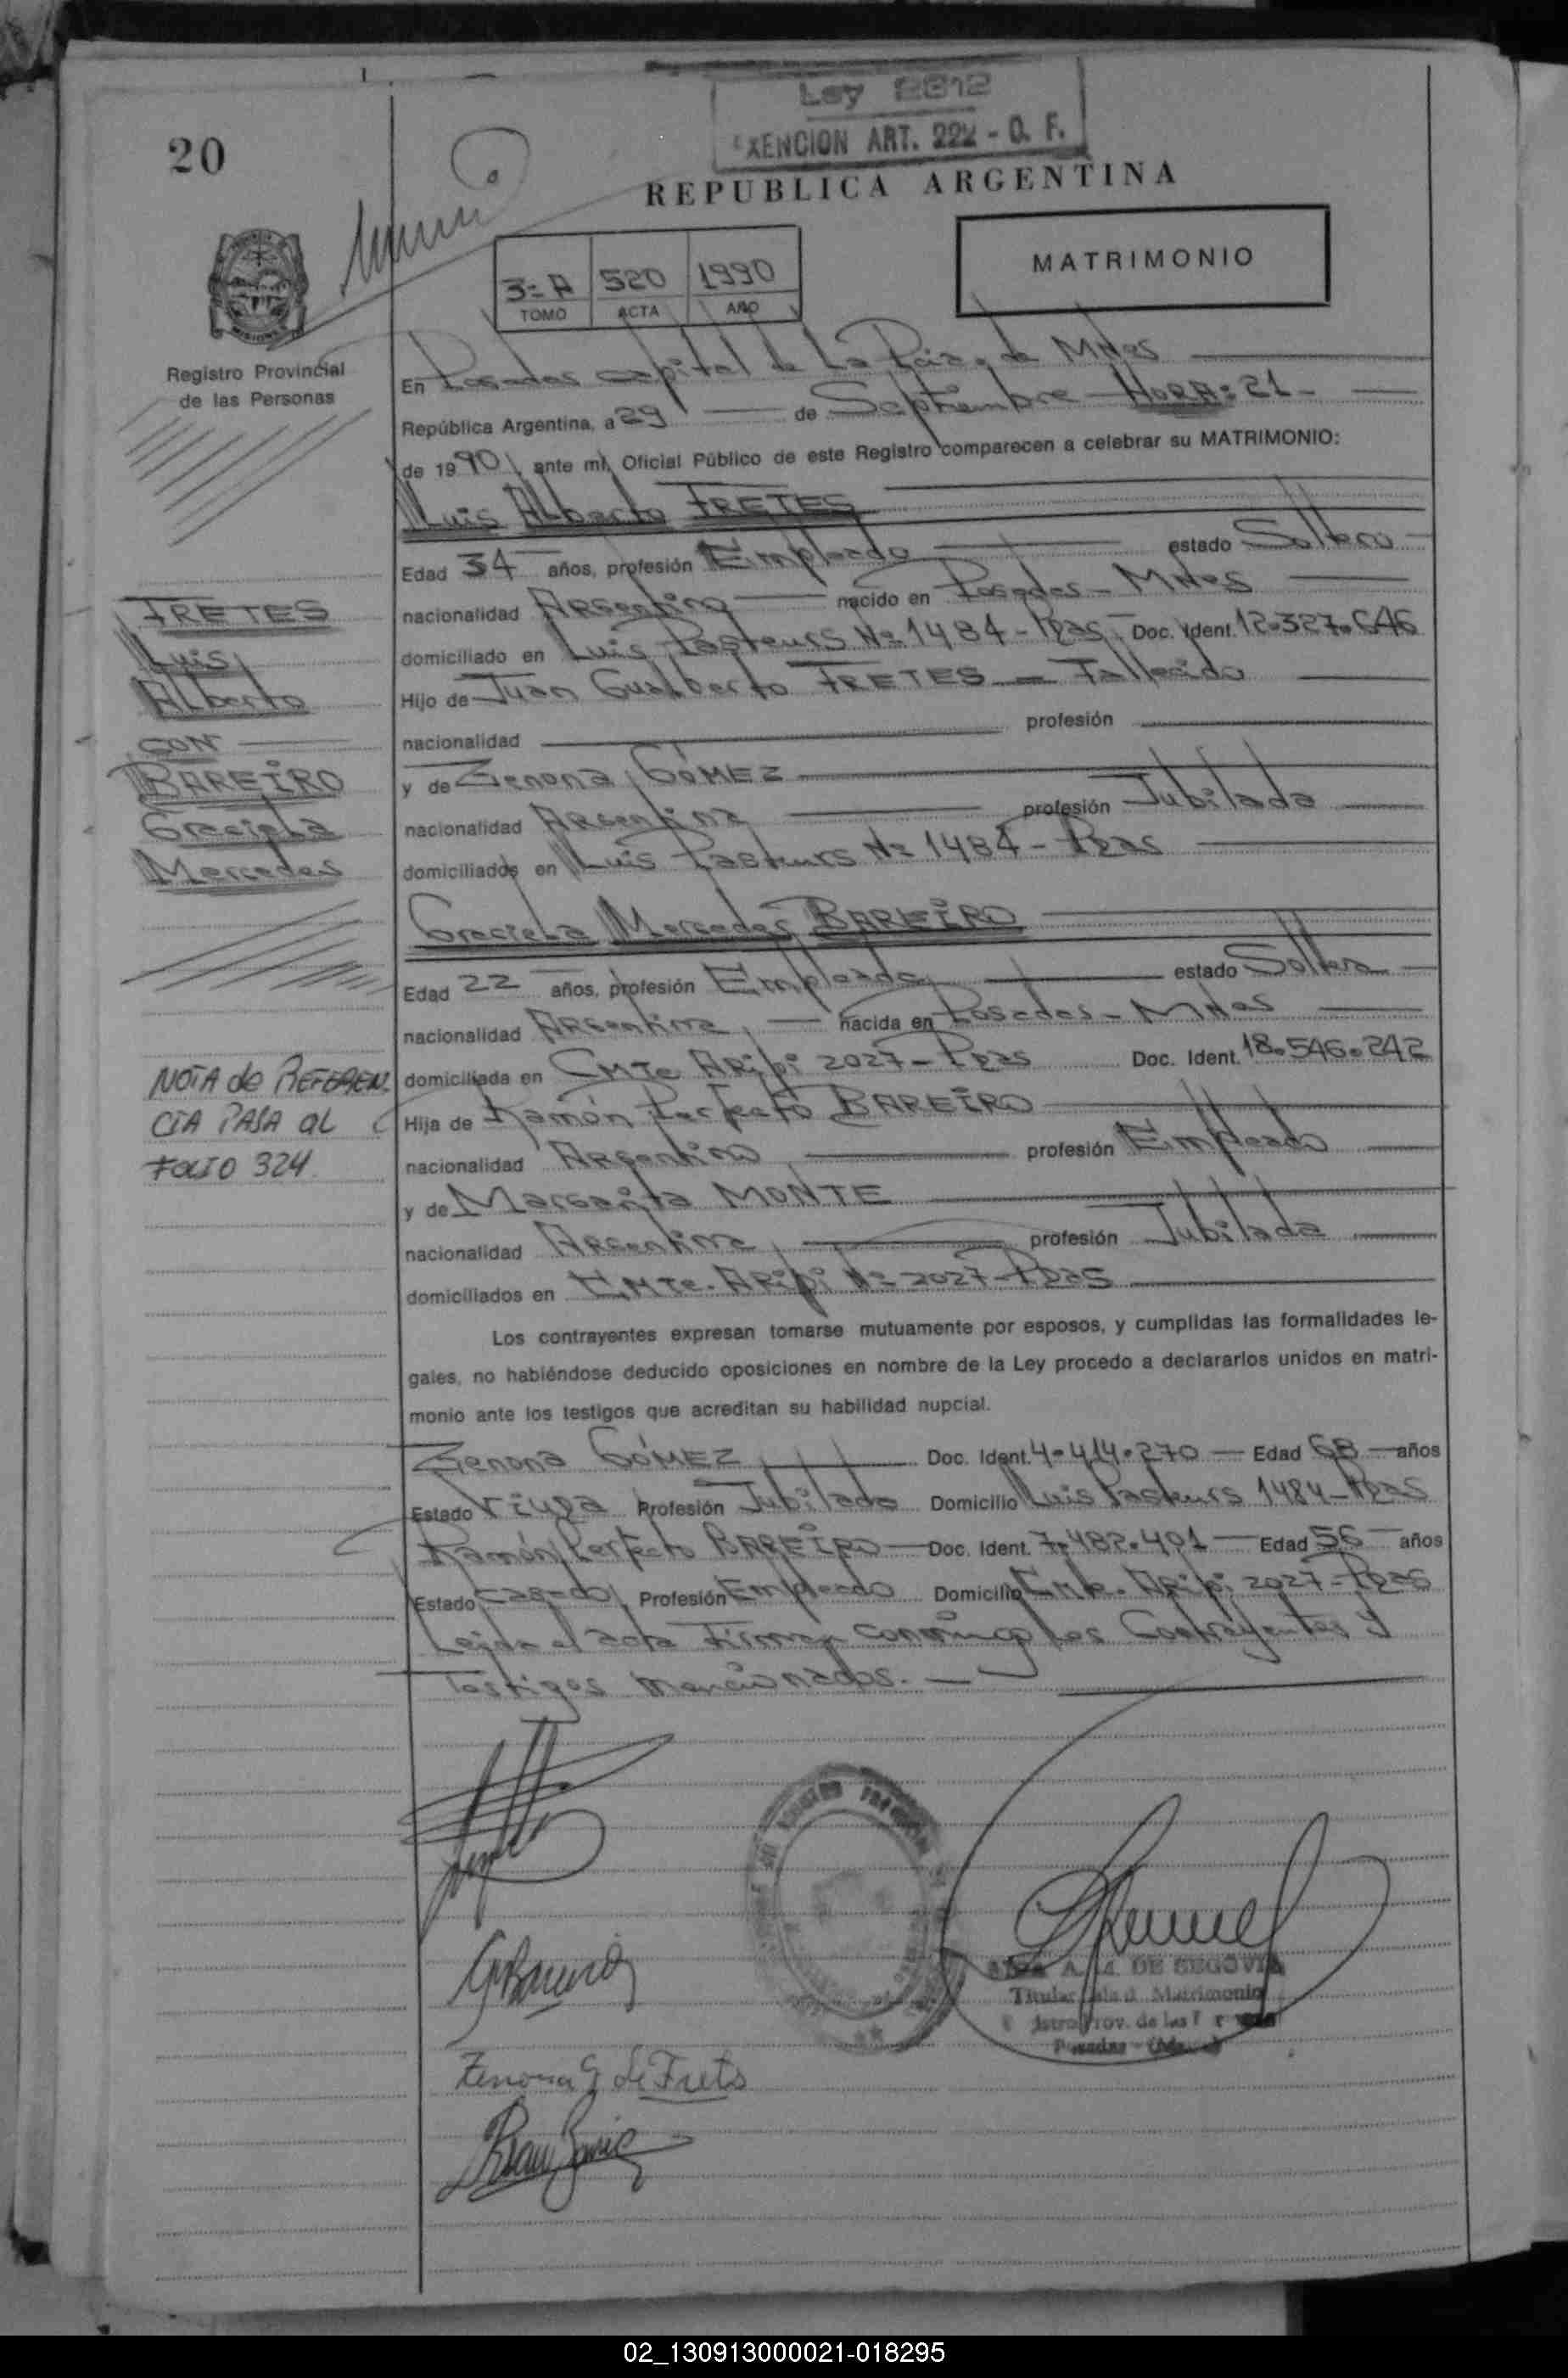 Ley 2612
EXENCION ART. 222 - O. F.
20
REPUBLICA ARGENTINA
MATRIMONIO
3=A 520 1990
TOMO ACTA AÑO
Registro Provincial
de las Personas
En Posadas capital de La Pcia. de Mnes
República Argentina, a 29 de Septiembre - HORA: 21 -
de 1990, ante mí, Oficial Público de este Registro comparecen a celebrar su MATRIMONIO:
Luis Alberto FRETES
Edad 34 años, profesión Empleado estado Soltero
nacionalidad Argentino nacido en Posadas - Mnes
domiciliado en Luis Pasteurs Nº 1484 - Pdas. Doc. Ident. 12.327.646
Hijo de Juan Gualberto FRETES = Fallecido
nacionalidad profesión
y de Zenona GÓMEZ
nacionalidad Argentina profesión Jubilada
domiciliados en Luis Pasteurs Nº 1484 - Pdas
Graciela Mercedes BAREIRO
Edad 22 años, profesión Empleada estado Soltera
nacionalidad Argentina, nacida en Posadas - Mnes
domiciliada en CMTe ARipi 2027 - Pdas Doc. Ident. 18.546.242
Hija de Ramón Perfecto BAREIRO
nacionalidad Argentino profesión Empleado
y de Margarita MONTE
nacionalidad Argentina, profesión Jubilada
domiciliados en CMTe. ARipi Nº 2027 - Pdas
Los contrayentes expresan tomarse mutuamente por esposos, y cumplidas las formalidades le-
gales, no habiéndose deducido oposiciones en nombre de la Ley procedo a declararlos unidos en matri-
monio ante los testigos que acreditan su habilidad nupcial.
Zenona GÓMEZ Doc. Ident. 4.414.270 - Edad 68 años
Estado Viuda Profesión Jubilada Domicilio Luis Pasteurs 1484 - Pdas
Ramón Perfecto BAREIRO - Doc. Ident. 7.482.401 - Edad 56 años
Estado casado Profesión Empleado Domicilio Cmte. ARipi 2027 - Pdas
Leida el acta Firman conmigo los Contrayentes y
Testigos mencionados. -
FRETES
Luis
Alberto
CON
BAREIRO
Graciela
Mercedes
NOTA de REFEREN-
CIA PASA al
FOLIO 324.
GBareiro
Zenona G de Frets
A. M. DE SEGOVIA
Titular Sala d. Matrimonio
Prov. de las
Posadas
02_130913000021-018295